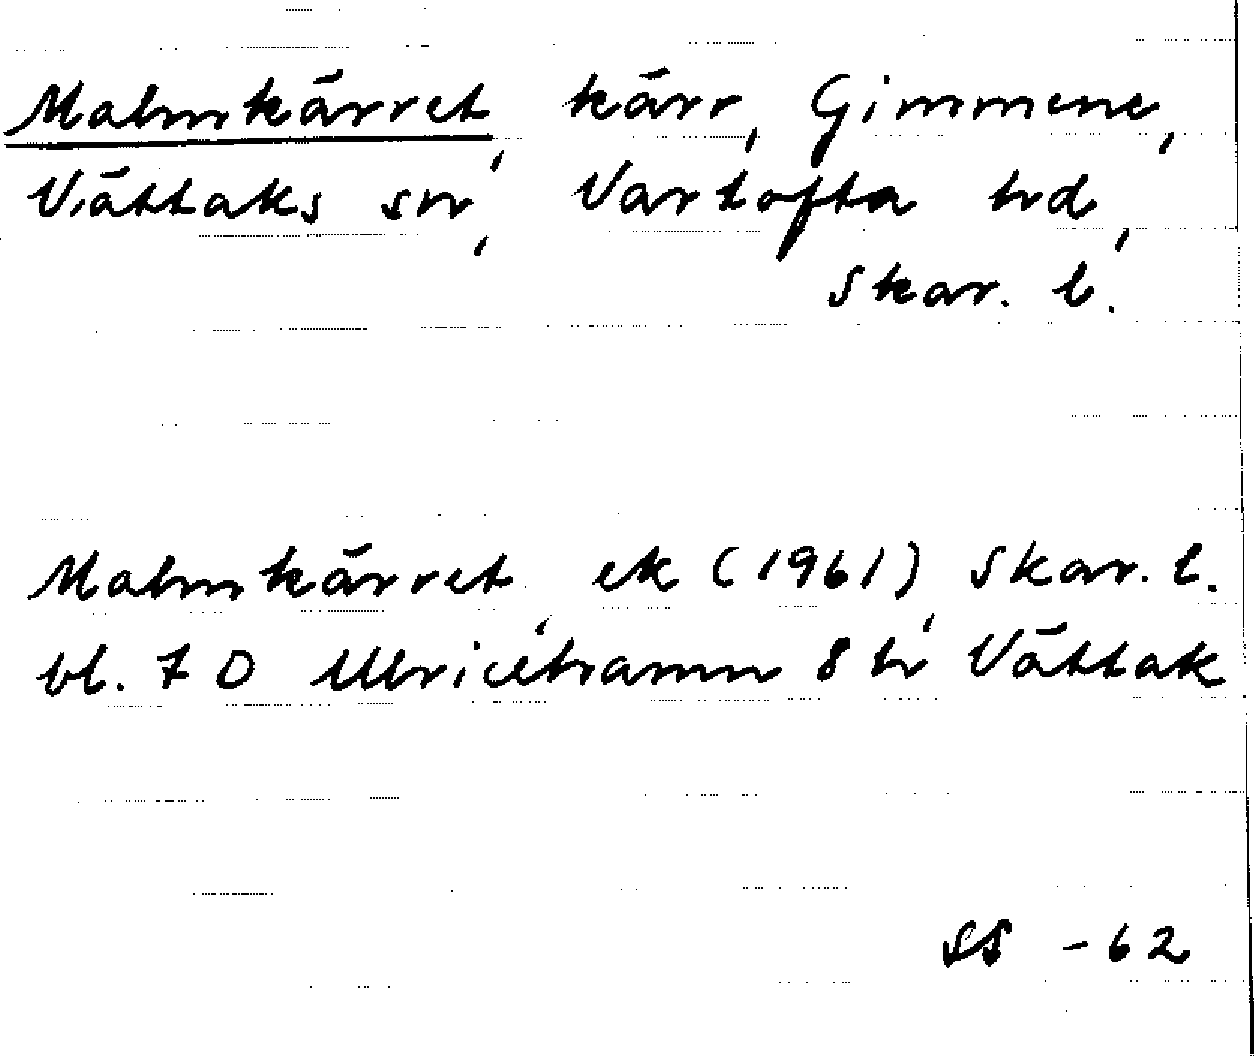 Malmkärret, kärr, Gimmene,
Vättaks sn, Vartofta hd,
Skar. l.
Malmkärret, ek (1961), Skar. l.
bl. 7 D Ulricehamn 8 h Vättak
SS -62